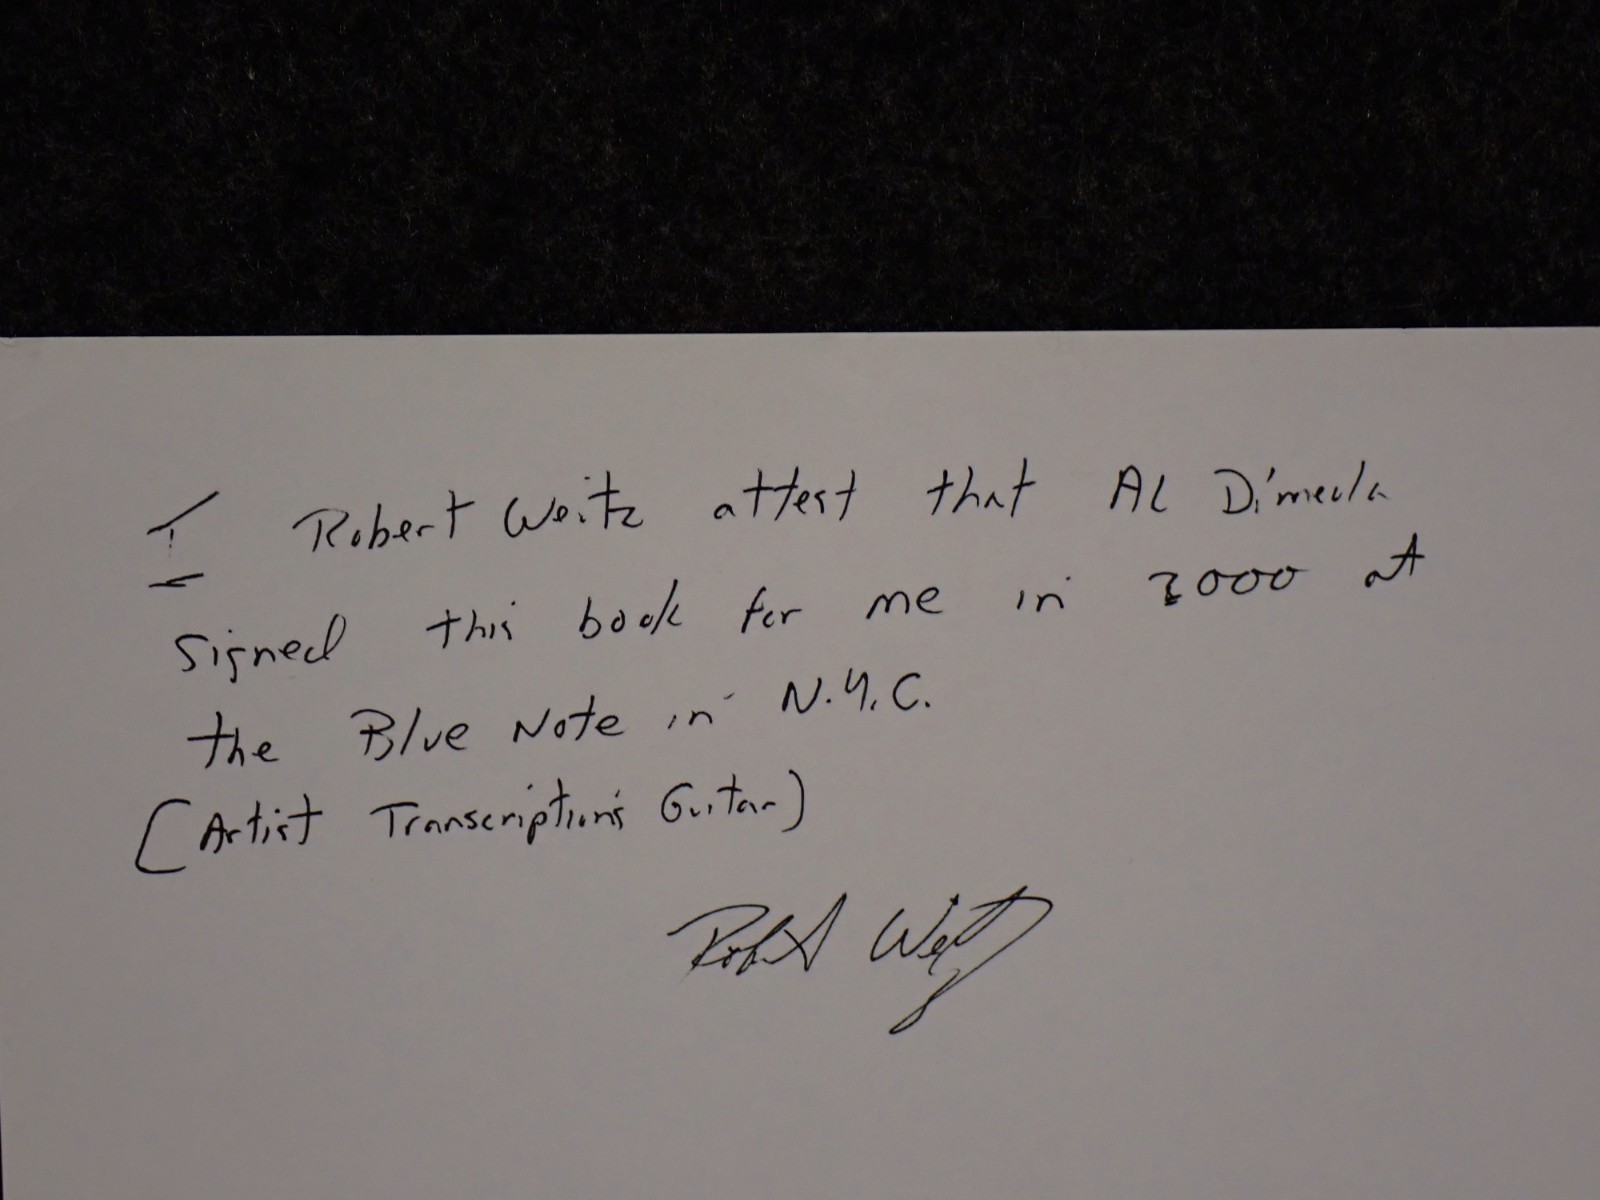 I Robert Weitz attest that AL Dimeola
signed this book for me in 2000 at
the Blue Note in N.Y.C.
(Artist Transcriptions Guitar)
Robert Weitz